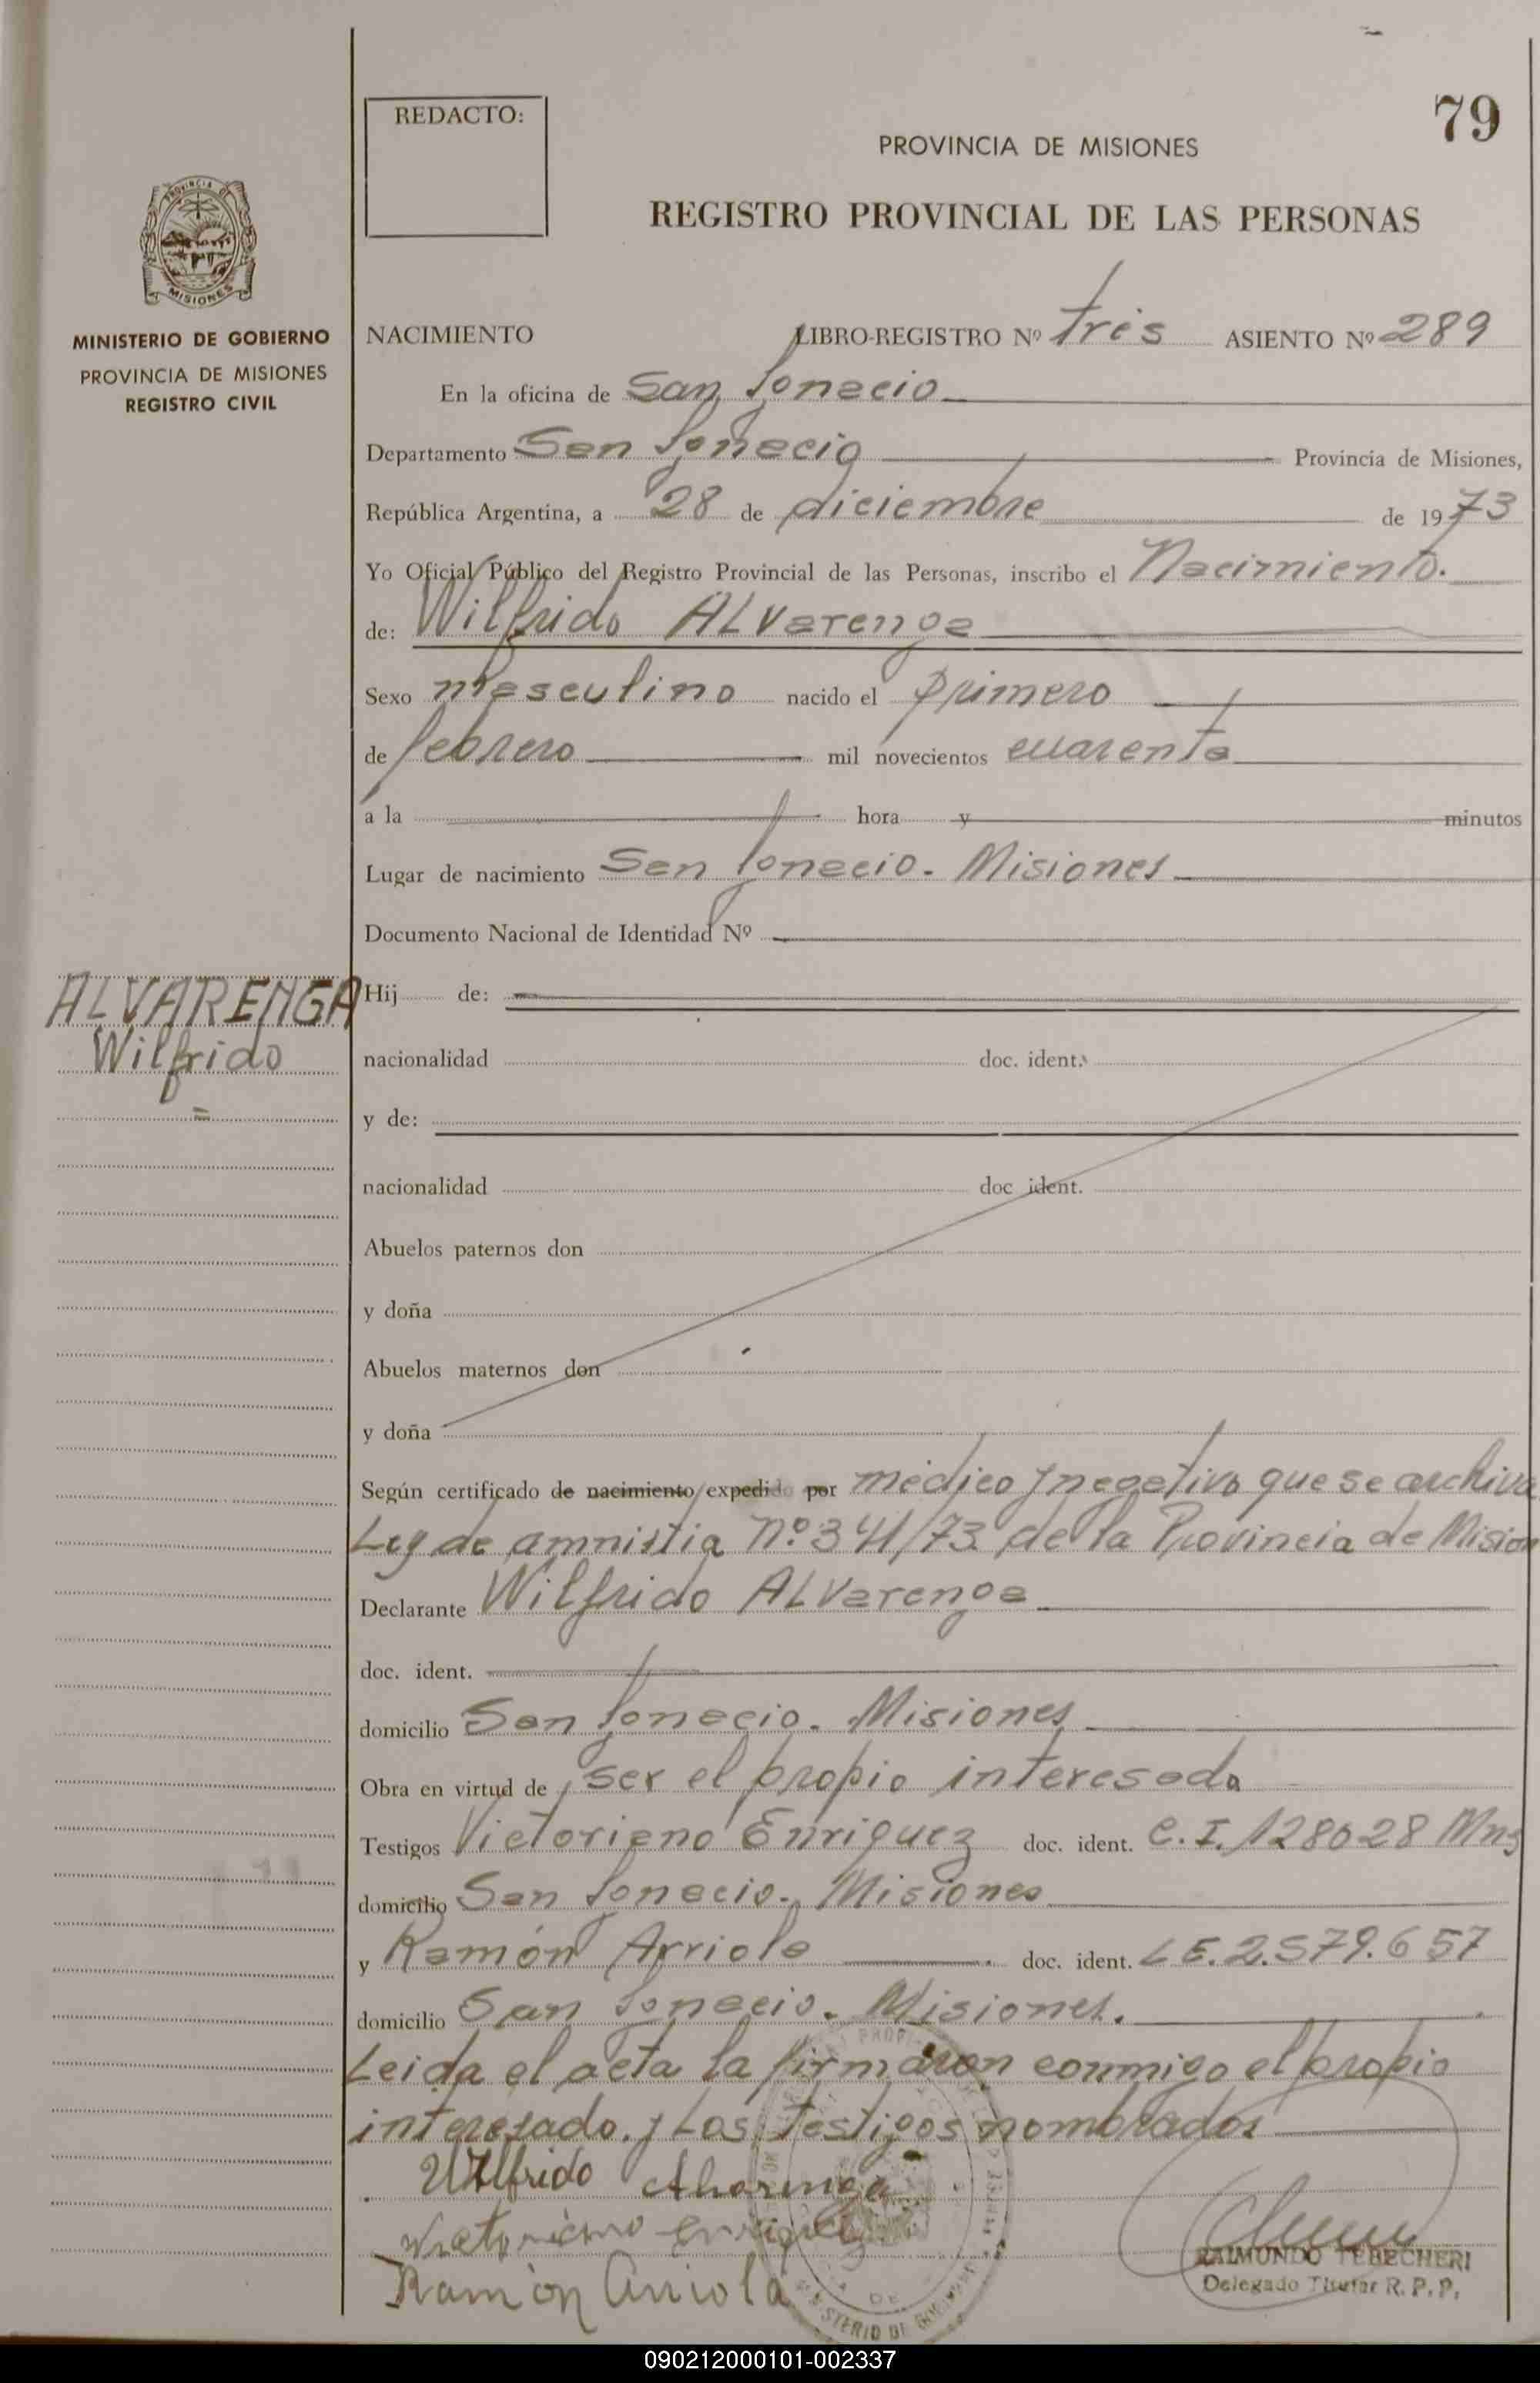 79
REDACTO:
PROVINCIA DE MISIONES
REGISTRO PROVINCIAL DE LAS PERSONAS
PROVINCIA DE
MISIONES
MINISTERIO DE GOBIERNO
PROVINCIA DE MISIONES
REGISTRO CIVIL
NACIMIENTO LIBRO-REGISTRO Nº tres ASIENTO Nº 289
En la oficina de San Ignacio
Departamento San Ignacio Provincia de Misiones,
República Argentina, a 28 de diciembre de 1973
Yo Oficial Público del Registro Provincial de las Personas, inscribo el Nacimiento.
de: Wilfrido ALVarenga
Sexo masculino nacido el primero
de febrero mil novecientos cuarenta
a la hora y minutos
Lugar de nacimiento San Ignacio. Misiones
Documento Nacional de Identidad Nº
ALVARENGA
Wilfrido
Hij de:
nacionalidad doc. ident.
y de:
nacionalidad doc ident.
Abuelos paternos don
y doña
Abuelos maternos don
y doña
Según certificado de nacimiento expedido por médico y negativo que se archiva
Ley de amnistia Nº 341/73 de la Provincia de Mision
Declarante Wilfrido ALVarenga
doc. ident.
domicilio San Ignacio. Misiones
Obra en virtud de ser el propio interesado
Testigos Victoriano Enriquez doc. ident. C.I. 128028 Mns
domicilio San Ignacio. Misiones
y Ramón Arriola doc. ident. LE.2.579.657
domicilio San Ignacio. Misiones.
Leida el acta la firmaron conmigo el propio
interesado y Los testigos nombrados
Wilfrido Alvarenga
Victoriano Enriquez
Ramón Arriola
RAIMUNDO TEBECHERI
Delegado Titular R. P. P.
090212000101-002337